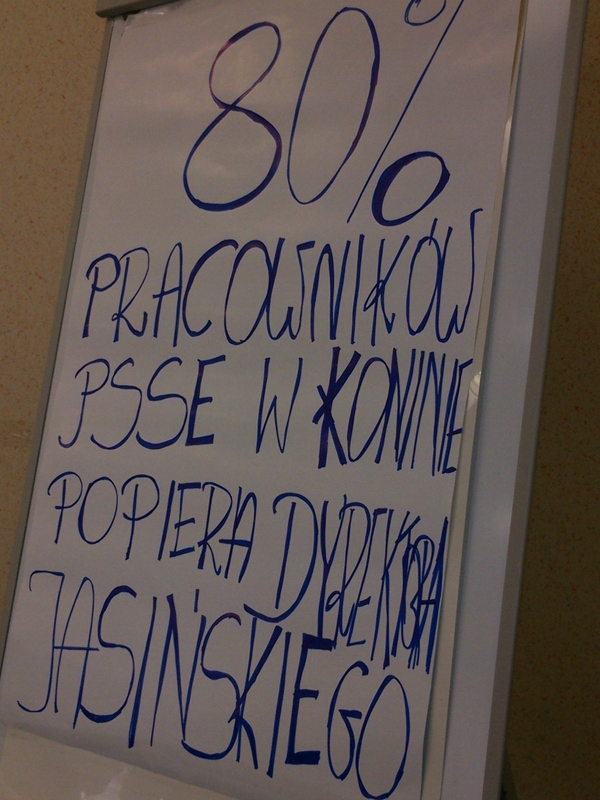 80%
PRACOWNIKÓW
PSSE W KONINIE
POPIERA DYREKTORA
JASIŃSKIEGO